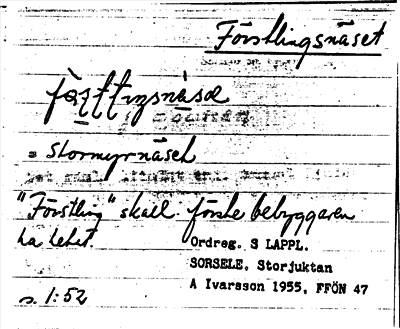 Förstlingsnäset
= Stormyrnäset
"Förstling" skall förste bebyggaren
ha hetat.
Ordreg. S LAPPL.
SORSELE, Storjuktan
A Ivarsson 1955, FFÖN 47
s. 1:52